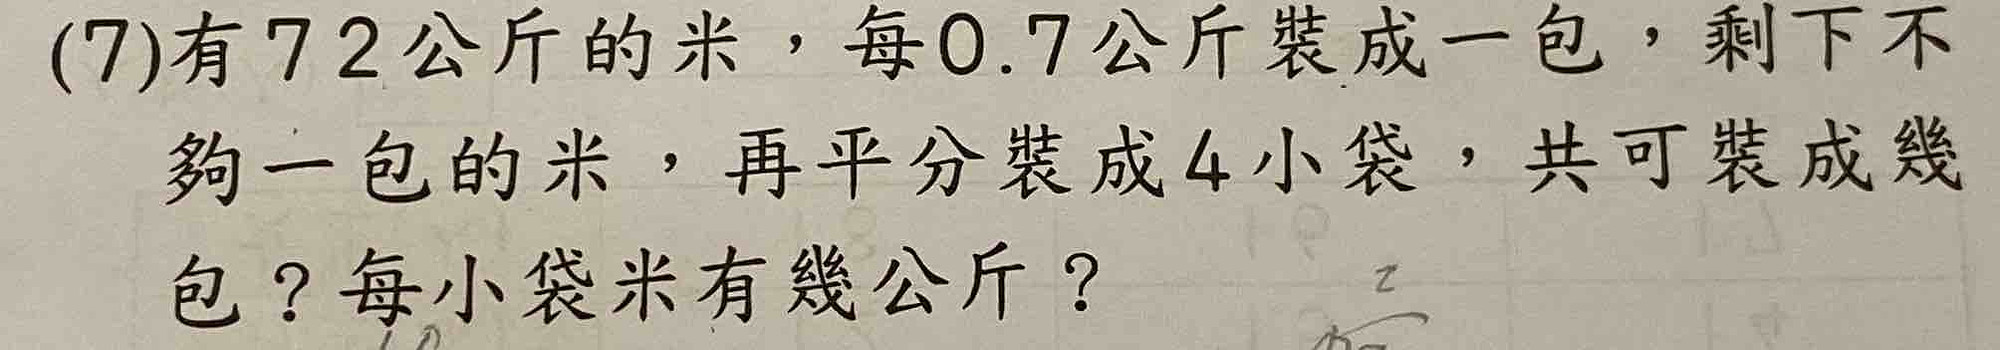 (7)有72公斤的米，每0.7公斤裝成一包，剩下不
夠一包的米，再平分裝成4小袋，共可裝成幾
包？每小袋米有幾公斤？